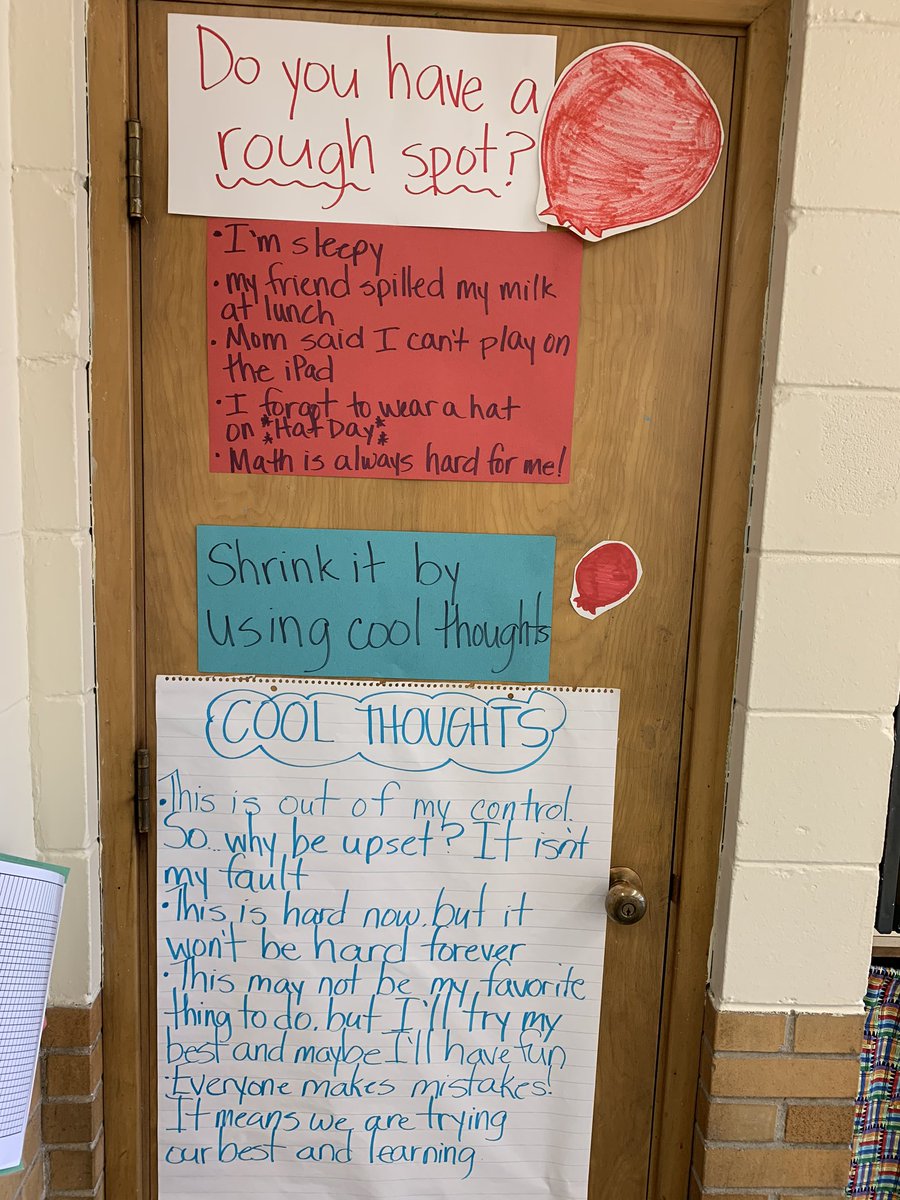 Do you have a
rough spot?
• I'm sleepy
• my friend spilled my milk
at lunch
• Mom said I can't play on
the iPad
• I forgot to wear a hat
on *Hat Day*
• Math is always hard for me!
Shrink it by
using cool thoughts
COOL THOUGHTS
• This is out of my control.
So... why be upset? It isn't
my fault
• This is hard now, but it
won't be hard forever
• This may not be my favorite
thing to do, but I'll try my
best and maybe I'll have fun
• Everyone makes mistakes!
It means we are trying
our best and learning